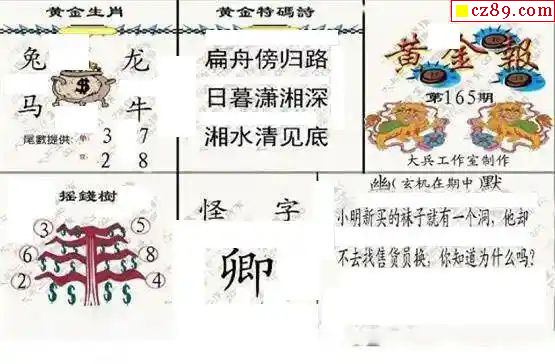 cz89.com
黄金生肖
兔 龙
马 牛
尾數提供:單 3 7
2 8
黄金特碼詩
扁舟傍归路
日暮潇湘深
湘水清见底
黄金報
第165期
大兵工作室制作
摇錢樹
③ ⑤
⑥ ⑧
② ④
怪 字
卿
幽(玄机在期中)默
小明新买的袜子就有一个洞,他却
不去找售货员换,你知道为什么吗?